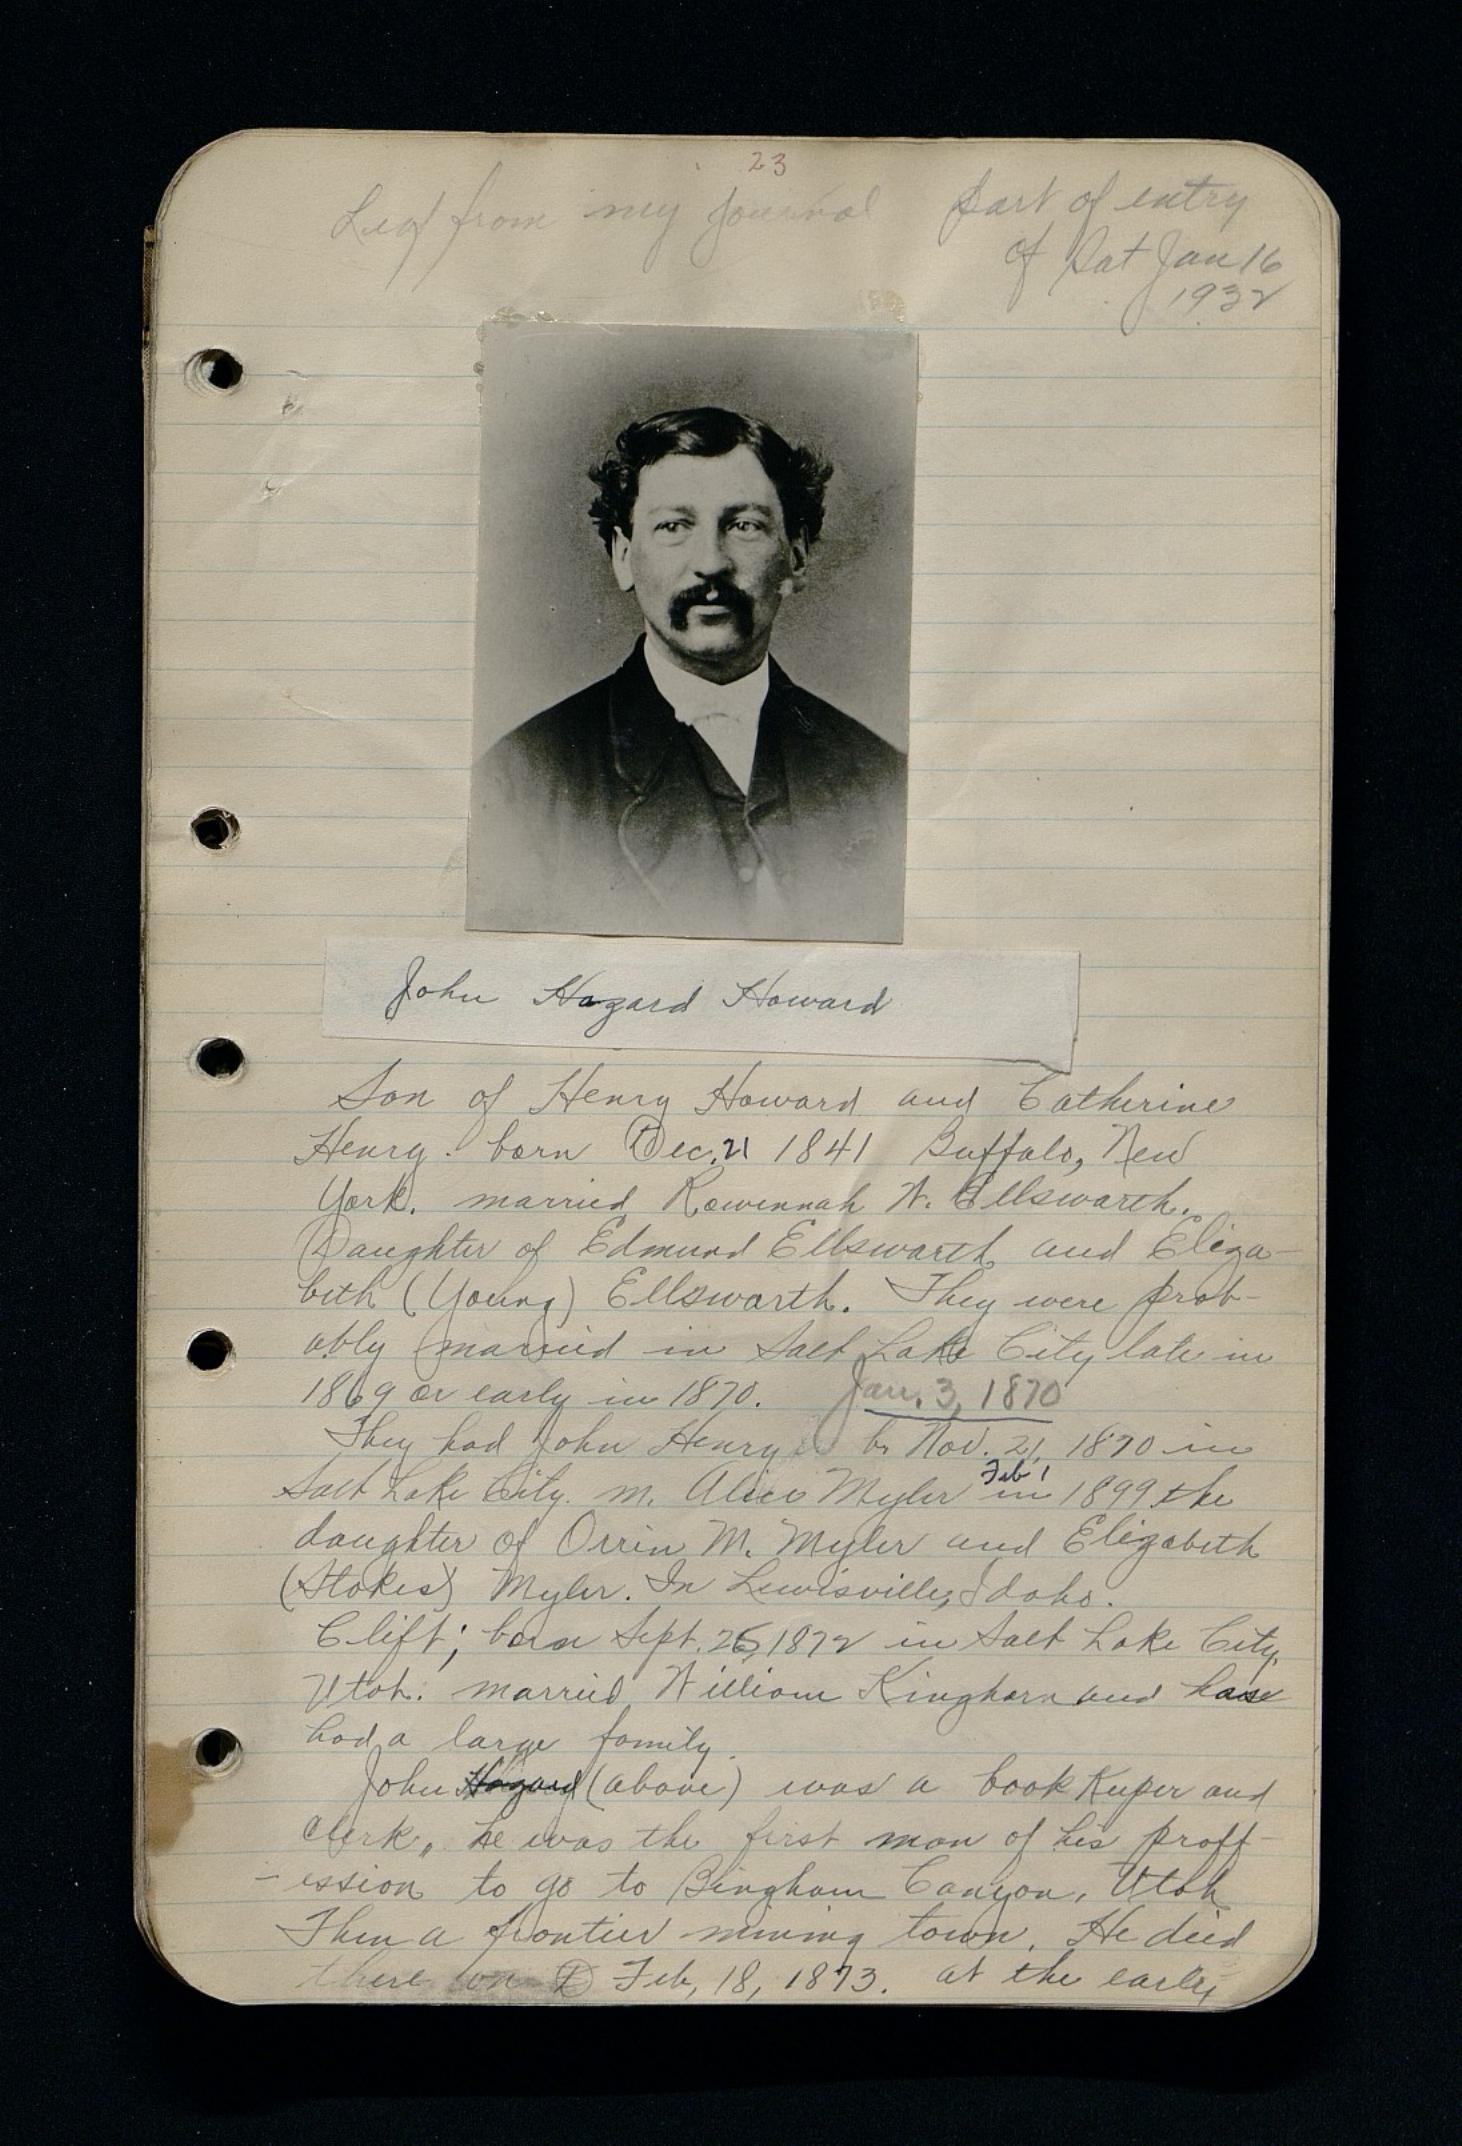 23
Leaf from my journal part of entry
of Sat Jan 16
1932
John Hazard Howard
Son of Henry Howard and Catherine
Henry. born Dec. 21 1841 Buffalo, New
York. married Rowennah W. Ellswarth.
Daughter of Edmund Ellswarth and Eliza-
beth (Young) Ellswarth. They were prob-
ably married in Salt Lake City late in
1869 or early in 1870. Jan. 3, 1870
They had John Henry b. Nov. 21, 1870 in
Salt Lake City. m. Alice Myler in Feb 1 1899 the
daughter of Orrin M. Myler and Elizabeth
(Stokes) Myler. In Lewisville, Idaho.
Clift; born Sept. 25, 1872 in Salt Lake City,
Utah. married William Kinghorn and have
had a large family.
John Hazard (above) was a book Keeper and
Clerk, he was the first man of his proff-
-ession to go to Bingham Canyon, Utah
Then a frontier mining town. He died
there on Feb, 18, 1873. at the early